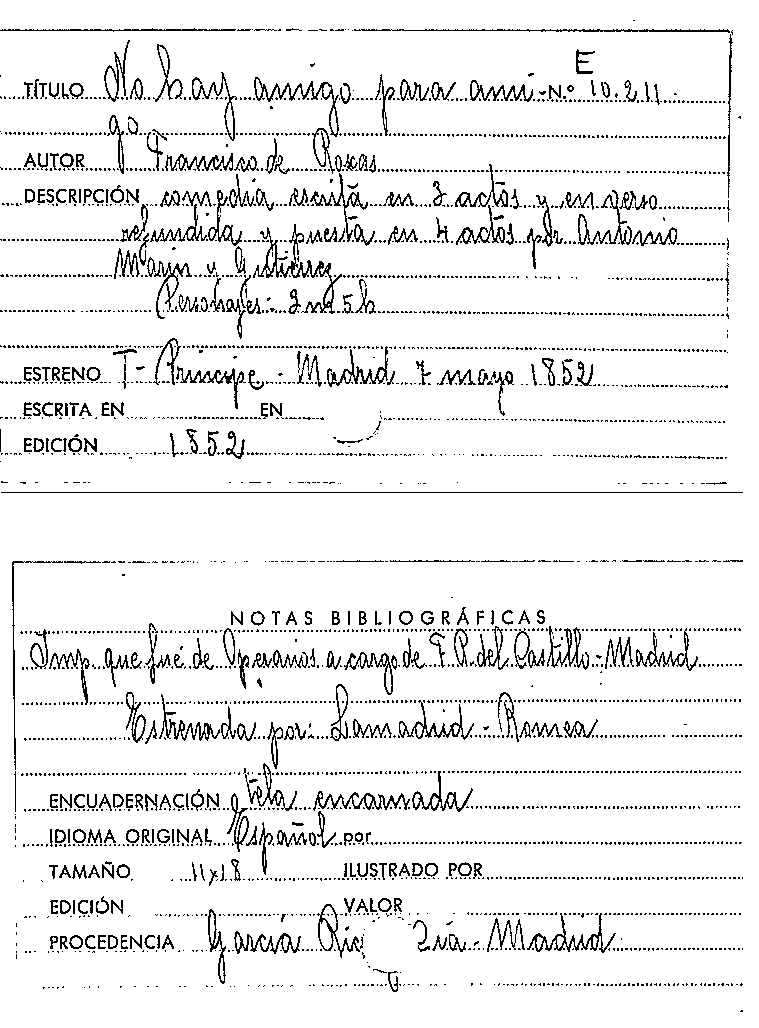 E
TÍTULO No hay amigo para ami- N.º 10.211
go
AUTOR Francisco de Roxas
DESCRIPCIÓN comedia escrita en 3 actos y en verso
refundida y puesta en 4 actos por Antonio
Marin y Gutiérrez
Personajes: 3 m 5 h
ESTRENO T- Principe - Madrid 7 mayo 1852
ESCRITA EN EN
EDICIÓN 1852
NOTAS BIBLIOGRÁFICAS
Imp. que fué de Operarios a cargo de F R. del Castillo - Madrid
Estrenada por: Lamadrid - Romea
ENCUADERNACIÓN tela encarnada
IDIOMA ORIGINAL Español por
TAMAÑO 11x18 ILUSTRADO POR
EDICIÓN VALOR
PROCEDENCIA García - Madrid